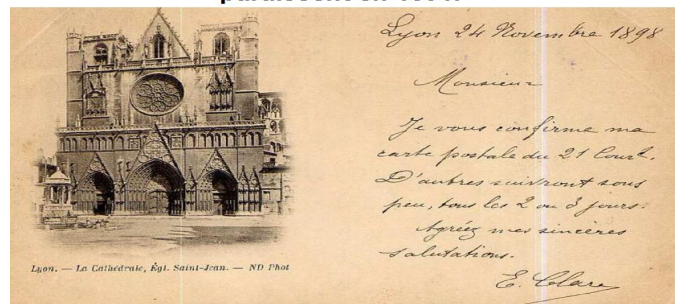 Lyon 24 Novembre 1898
Monsieur
Je vous confirme ma
carte postale du 21 Court.
D'autres suivront sous
peu, tous les 2 ou 3 jours.
Agréez mes sincères
salutations.
E. Clare
Lyon. — La Cathédrale, Égl. Saint-Jean. — ND Phot